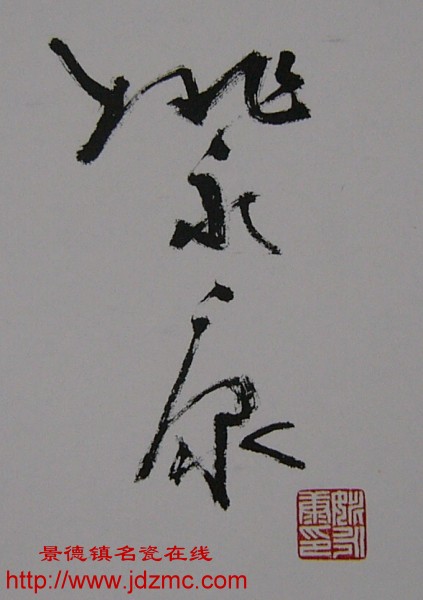 姚永康
姚永康印
景德镇名瓷在线
http://www.jdzmc.com